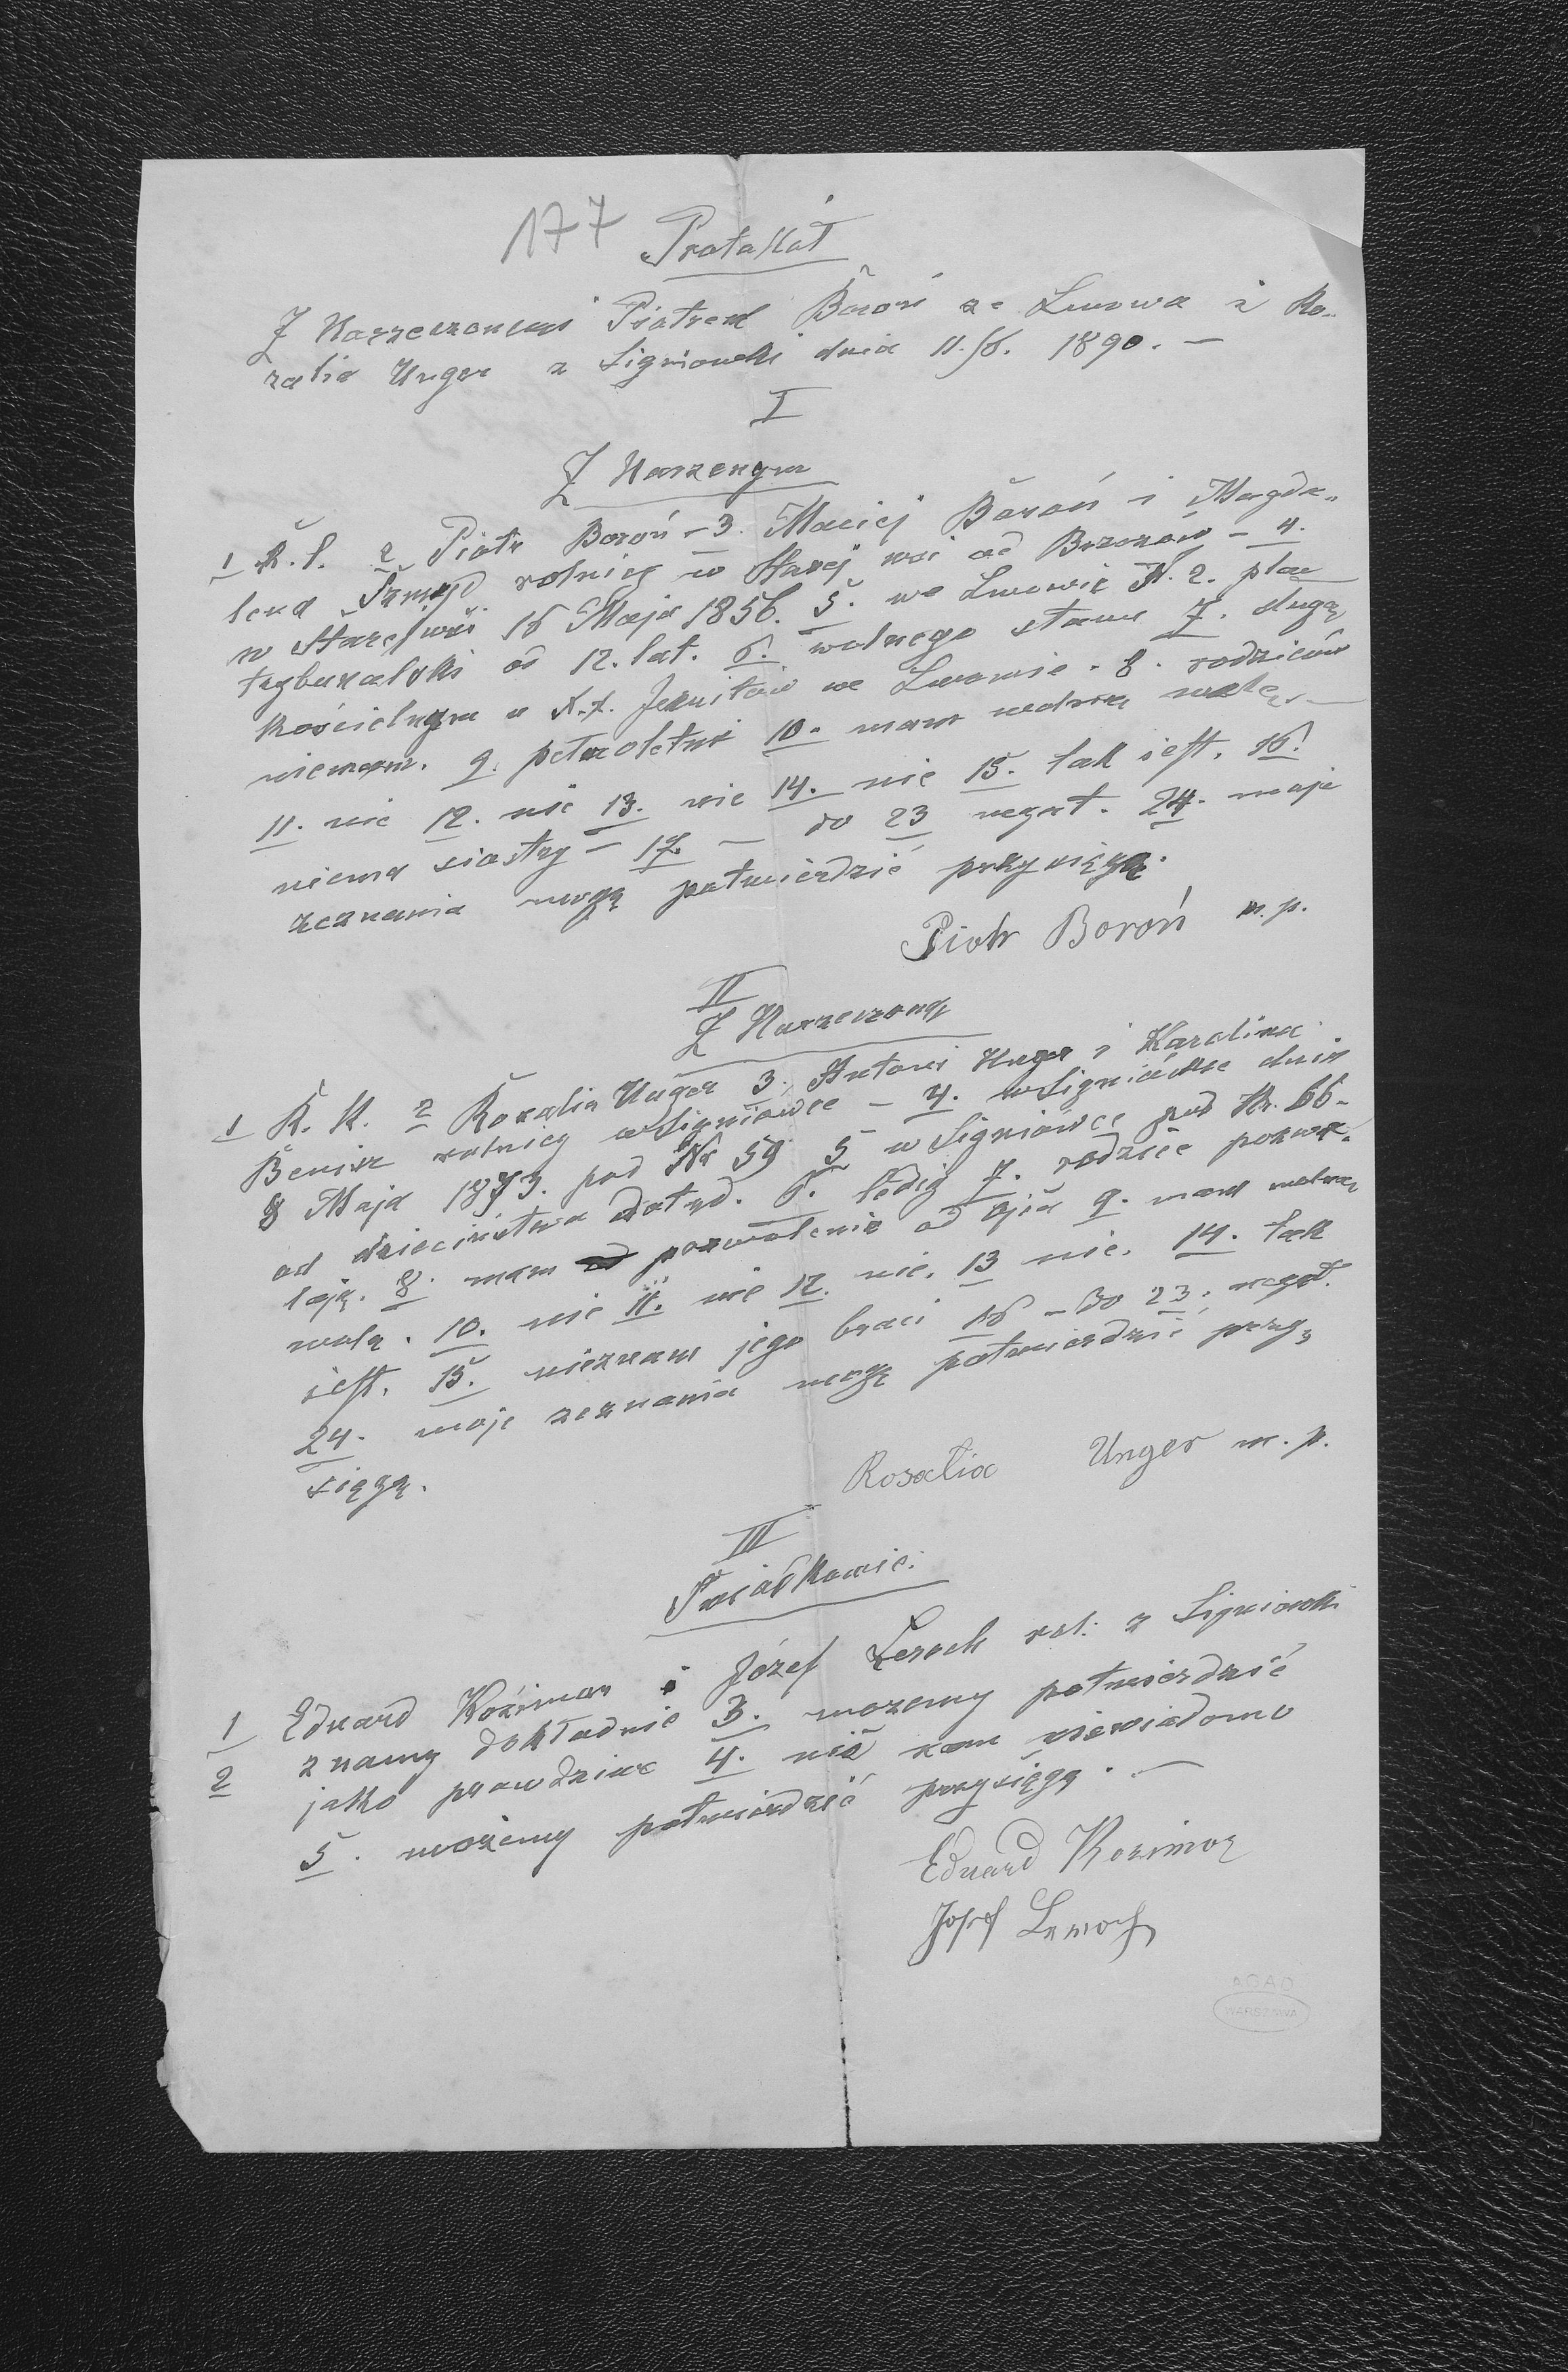 177 Protokół
Z Narzeczonemi Piotrem Boroń ze Lwowa i Ro-
zalia Unger z Signiowki dnia 11./6. 1890. —
I
Z Narzenym
1 R. l. 2 Piotr Boroń – 3. Maciej Boroń i Magda-
lena rolnicy w Starej wsi od Brzozów – 4.
w Starejwsi 16 Maja 1856. 5. we Lwowie N. 2. plac
trybunalski od 12. lat. 6. wolnego stanu 7. sługą
kościelnym u X.X. Jezuitów we Lwowie. 8. rodziców
niemam. 9. pełnoletni 10. mam wolną wolę. —
11. nie 12. nie 13. nie 14. nie 15. tak jest. 16.
niema siostry – 17. – do 23 negat. 24. moje
zeznania mogę potwierdzić przysięgą.
Piotr Boroń m. p.
II
Z Narzeczoną
1 R. K. 2 Rozalia Unger 3. Antoni Unger i Karolina
Benisz rolnicy w Signiówce – 4. w Signiówce dnia
8 Maja 1873. pod Nr 59 5 w Signiówce pod Nr. 66-
od dzieciństwa dotąd. 6. ledig 7. rodzice pozwa-
lają. 8. mam pozwolenie od ojca 9. mam wolną
wolą. 10. nie 11. nie 12. nie. 13 nie. 14. tak
jest. 15. nieznam jego braci 16 – do 23. negat.
24. moje zeznania mogę potwierdzić przy-
sięgą.
Rosalia Unger m. p.
III
Świadkowie.
1 Eduard Kozimor i Józef Leroch rol: z Signiowki
2 znamy dokładnie 3. mozemy potwierdzić
jako prawdziwe 4. nic nam niewiadomo
5. możemy potwierdzić przysięgą. —
Eduard Kozimor
Josef Leroch
AGAD
WARSZAWA